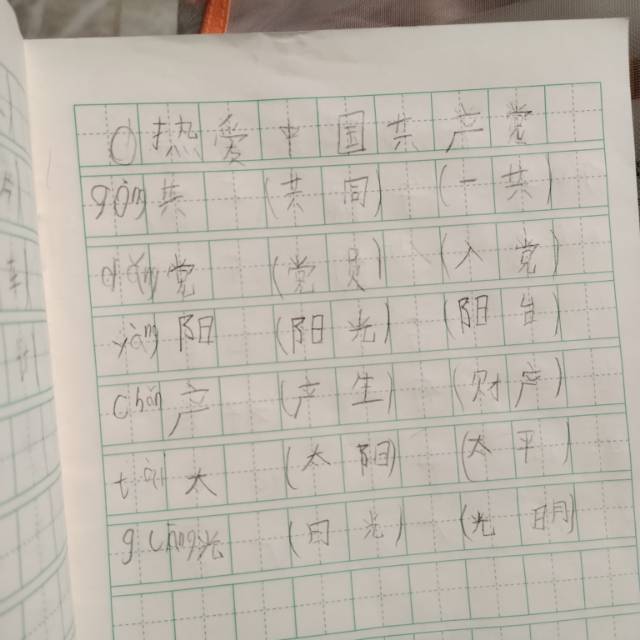 0热爱中国共产党
gòng共 (共同) (一共)
dǎng党 (党员) (入党)
yáng阳 (阳光) (阳台)
chǎn产 (产生) (财产)
tài太 (太阳) (太平)
guāng光 (日光) (光明)